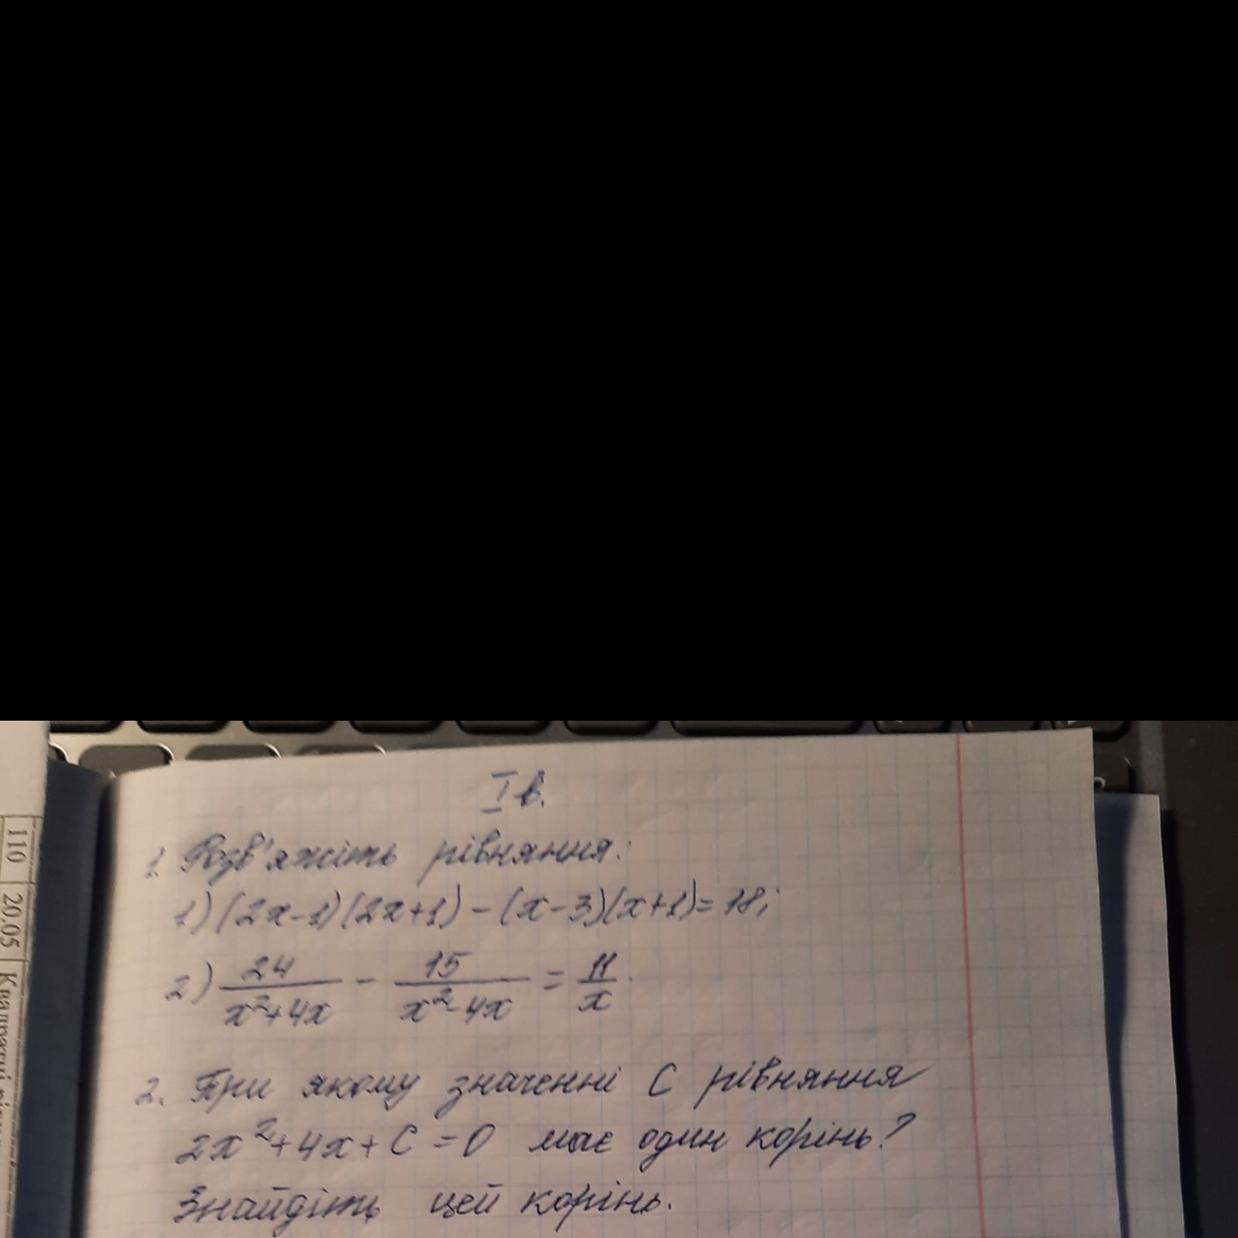 I в.
1. Розв'яжіть рівняння:
1) (2x-1)(2x+1)-(x-3)(x+1)=18;
2) 24/(x²+4x) - 15/(x²-4x) = 11/x.
2. При якому значенні C рівняння
2x²+4x+C=0 має один корінь?
Знайдіть цей корінь.
110
20.05